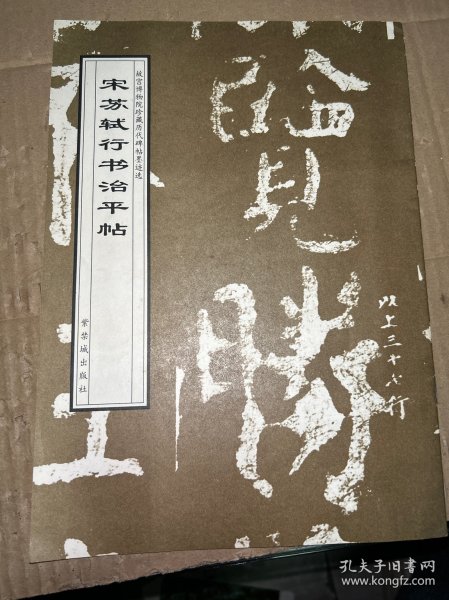 故宫博物院珍藏历代碑帖墨迹选
宋苏轼行书治平帖
紫禁城出版社
览胜
以上三十七行
孔夫子旧书网
www.kongfz.com